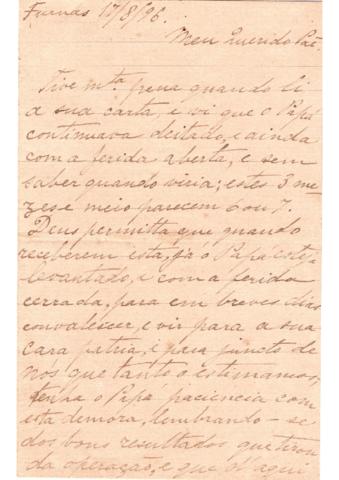 Furnas 17/8/96.
Meu Querido Pae.
Tive mta. pena quando li
a sua carta, e vi que o Papá
continuava deitado, e ainda
com a ferida aberta, e sem
saber quando viria; estes 3 me
zes e meio parecem 6 ou 7.
Deus permitta que quando
receberem esta, já o Papá esteja
levantado, e com a ferida
cerrada, para em breves dias
convalescer, e vir para a sua
cara patria, e para juncto de
nós que tanto o estimamos,
tenha o Papá paciencia com
esta demora, lembrando-se
dos bons resultados que tirou
da operação, e que se aqui